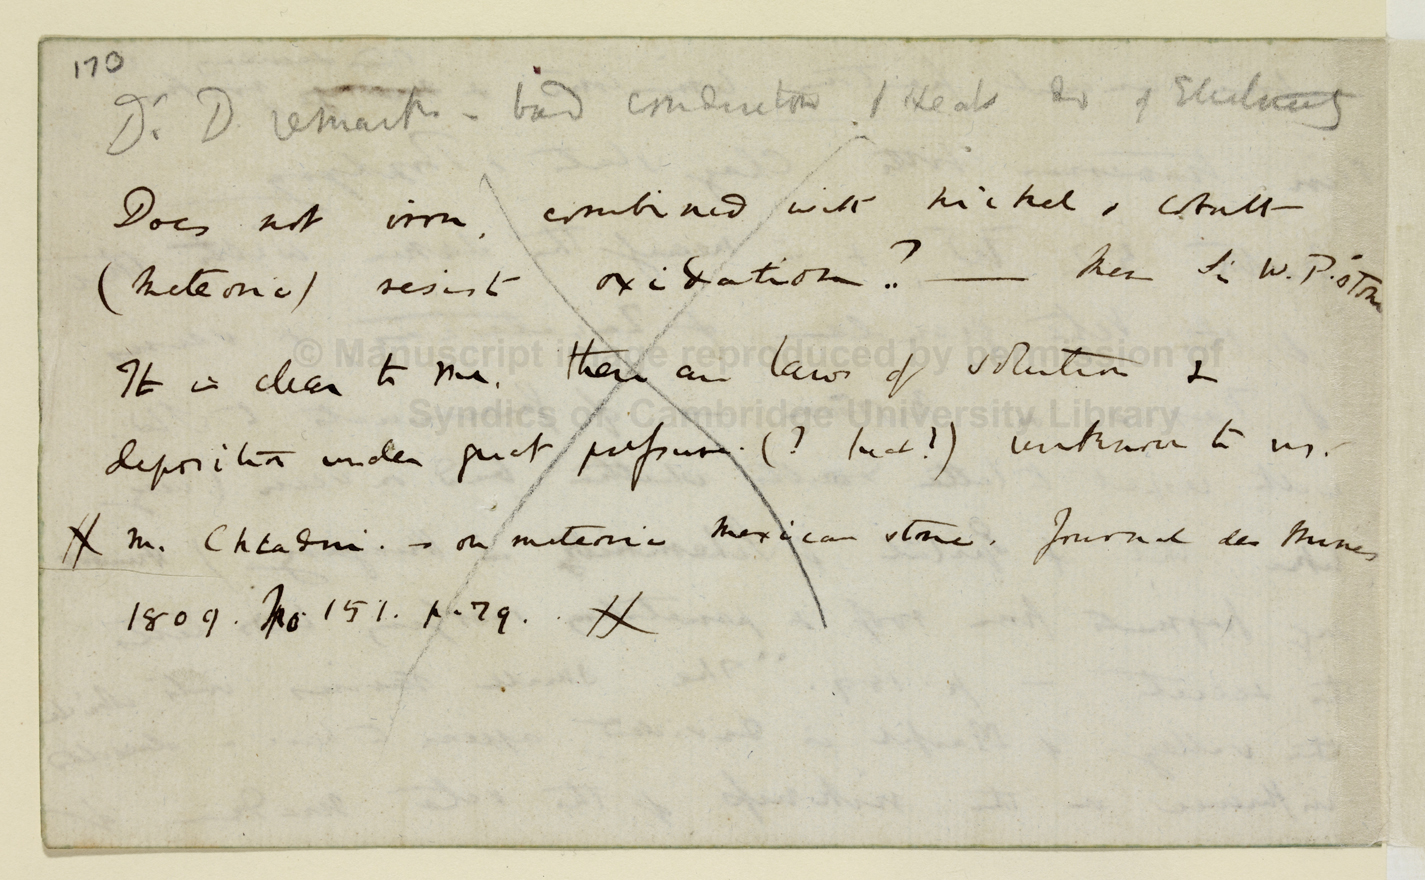 170
Dr D remarks – bad conductors of Heat do of Electricity
Does not iron, combined with nickel & cobalt
(meteoric) resist oxidation? —
It is clear to me, there are laws of solution &
deposition under great pressure. (? heat?) unknown to us.
© Manuscript image reproduced by permission of
Syndics of Cambridge University Library
M. Chladni. – on meteoric Mexican stone. Journal des Mines
1809. No 151. p. 79.